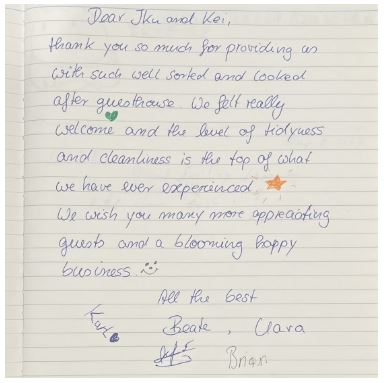 Dear Iku and Kei,
thank you so much for providing us
with such well sorted and looked
after guesthouse. We felt really
welcome and the level of tidyness
and cleanliness is the top of what
we have ever experienced.
We wish you many more appreciating
guests and a blooming happy
business
All the best
Beate, Clara
Brian